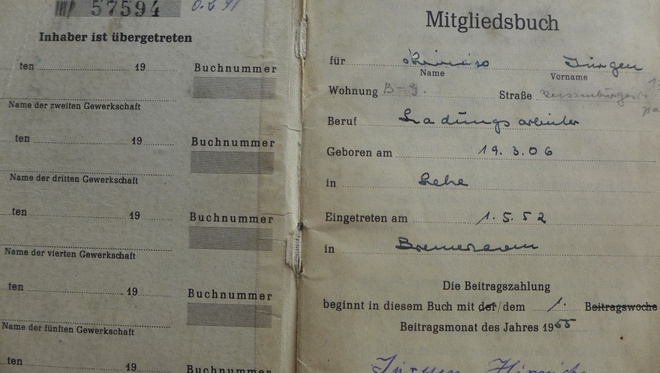 57594
Inhaber ist übergetreten
ten 19 Buchnummer
Name der zweiten Gewerkschaft
ten 19 Buchnummer
Name der dritten Gewerkschaft
ten 19 Buchnummer
Name der vierten Gewerkschaft
ten 19 Buchnummer
Name der fünften Gewerkschaft
ten 19 Buchnummer
Mitgliedsbuch
für Jürgen
Name Vorname
Wohnung B-G. Straße
Beruf Ladungsarbeiter
Geboren am 19.3.06
in Lehe
Eingetreten am 1.5.52
in Bremerhaven
Die Beitragszahlung
beginnt in diesem Buch mit der/dem 1. Beitragswoche
Beitragsmonat des Jahres 1955
Jürgen